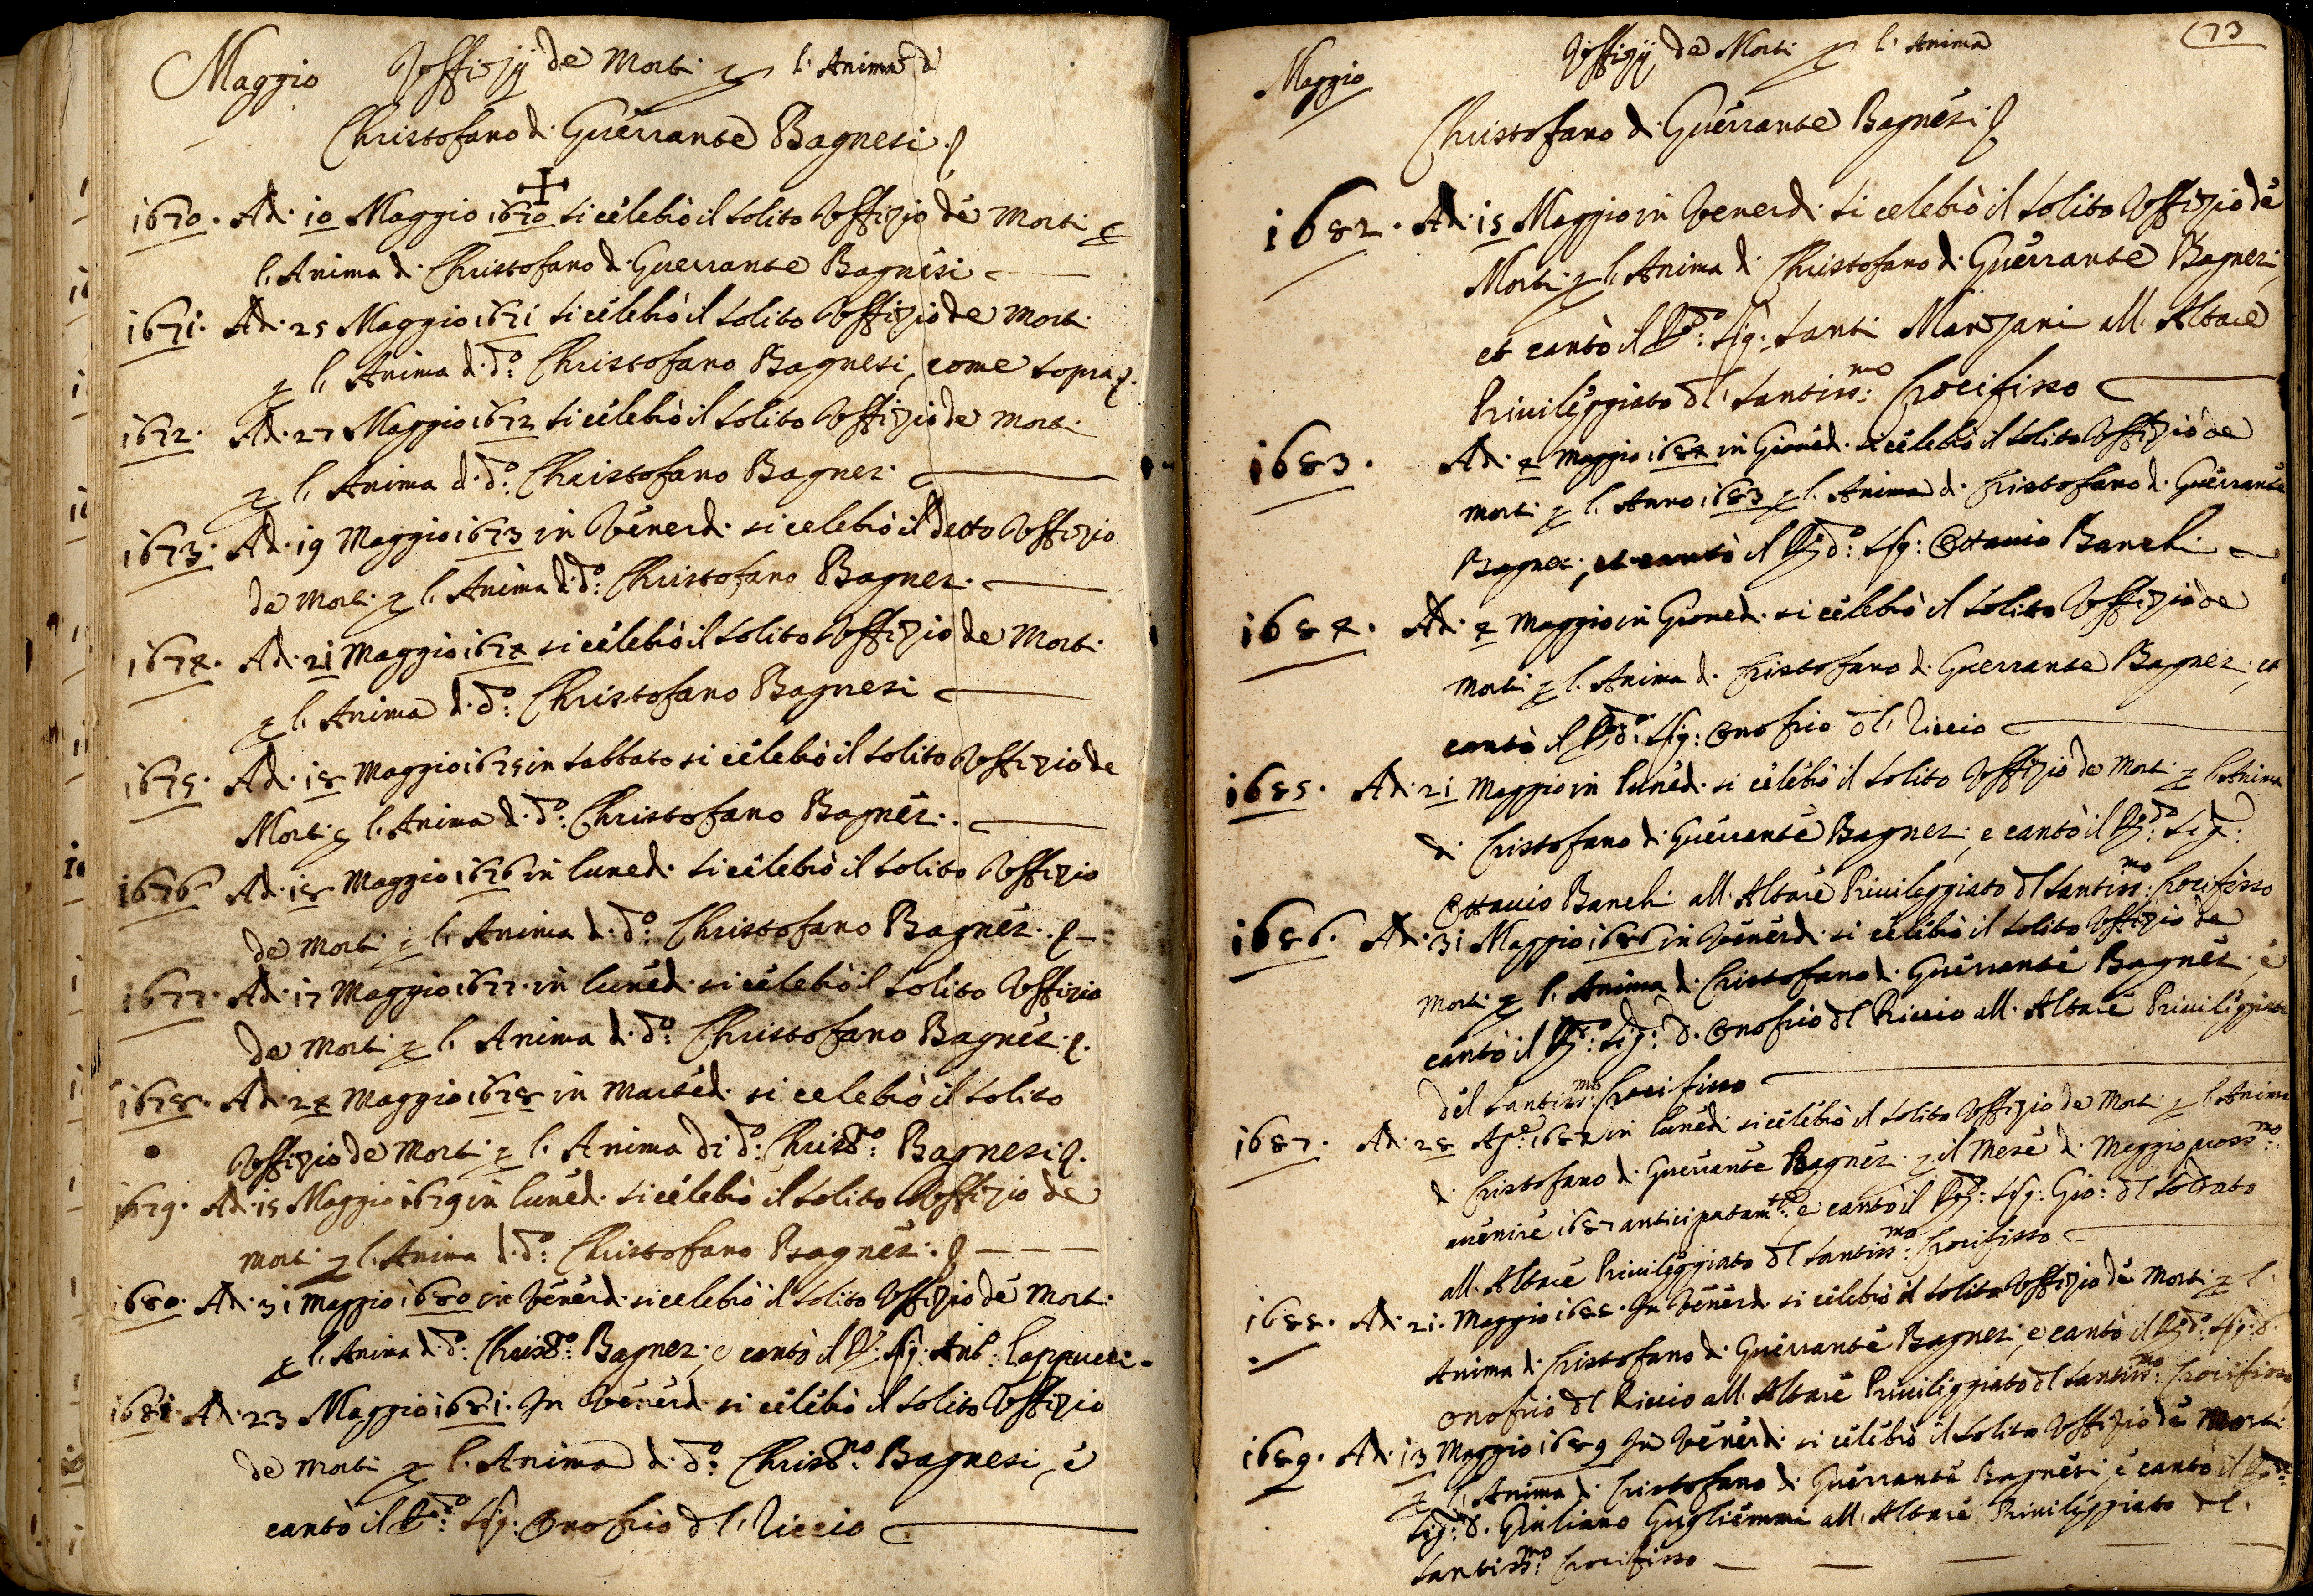 Maggio Uffizij de Morti p l'Anima d
Christofano d. Guerrante Bagnesi.
1670. Ad. 10 Maggio 1670 si celebrò il solito Uffizio de Morti p
l'Anima d. Christofano d. Guerrante Bagnesi
1671. Ad. 25 Maggio 1671 si celebrò il solito Uffizio de Morti
p l'Anima d. do: Christofano Bagnesi, come sopra.
1672. Ad. 27 Maggio 1672 si celebrò il solito Uffizio de Morti
p l'Anima d. do: Christofano Bagnesi.
1673. Ad. 19 Maggio 1673 in Venerd. si celebrò il detto Uffizio
de Morti p l'Anima d. do: Christofano Bagnesi.
1674. Ad. 21 Maggio 1674 si celebrò il solito Uffizio de Morti.
p l'Anima d. do: Christofano Bagnesi
1675. Ad. 18 Maggio 1675 in Sabbato si celebrò il solito Uffizio de
Morti p l'Anima d. do: Christofano Bagnesi.
1676 Ad. 18 Maggio 1676 in luned. si celebrò il solito Uffizio
de Morti p l'Anima d. do: Christofano Bagnesi.
1677. Ad. 17 Maggio 1677. in luned. si celebrò il solito Uffizio
de Morti p l'Anima d. do: Christofano Bagnesi.
1678. Ad. 24 Maggio 1678 in Marted. si celebrò il solito
Uffizio de Morti p l'Anima di do: Christo: Bagnesi.
1679. Ad. 15 Maggio 1679 in luned. si celebrò il solito Uffizio de
Morti p l'Anima d. do: Christofano Bagnesi.
1680. Ad. 31 Maggio 1680 in Venerd. si celebrò il solito Uffizio de Morti.
p l'Anima d. do: Christo: Bagnesi, e cantò il R: Sig: Ant: Cappucci.
1681. Ad. 23 Maggio 1681. In Venerd. si celebrò il solito Uffizio
de Morti p l'Anima d. do: Christno: Bagnesi, e
cantò il Rdo: Sig: Onofrio dl, Riccio
73
Maggio Uffizij de Morti p l'Anima
Christofano d. Guerrante Bagnesi
1682. Ad. 15 Maggio in Venerd. si celebrò il solito Uffizio de
Morti p l'Anima di Christofano d. Guerrante Bagnesi,
et cantò il Rdo: Sig: Santi Manzani all'Altare
Privileggiato dl, Santissmo: Crocifisso
1683. Ad. 4 Maggio 1684 in Gioved. si celebrò il solito Uffizio de
Morti p l'Anno 1683 p l'Anima d. Cristofano d. Guerrante
Bagnesi, et cantò il Rdo: Sig: Ottavio Banchi
1684. Ad. 4 Maggio in Gioved. si celebrò il solito Uffizio de
Morti p l'Anima d. Cristofano d. Guerrante Bagnesi. et
cantò il Rdo: Sig: Onofrio dl, Riccio
1685. Ad. 21 Maggio in luned. si celebrò il solito Uffizio de Morti p l'Anima
di Cristofano d. Guerrante Bagnesi, e cantò il Rdo: Sig:
Ottavio Banchi all'Altare Privileggiato dl Santissmo: Crocifisso
1686. Ad. 31 Maggio 1686 in Venerd. si celebrò il solito Uffizio de
Morti p l'Anima d. Cristofano d. Guerrante Bagnesi, e
cantò il Rdo: Sig: D. Onofrio dl Riccio all'Altare Privileggiato
del Santissmo: Crocifisso
1687. Ad. 28 Ape: 1687 in lunedi si celebrò il solito Uffizio de Morti p l'Anima
d. Cristofano d. Guerrante Bagnesi. p il Mese d. Maggio prossmo:
avenire 1687 anticipatamte: e cantò il Rdo: Sig: Gio: dl Soldato
all'Altare Privileggiato dl Santissmo: Crocifisso
1688. Ad. 21. Maggio 1688. In Venerd. si celebrò il solito Uffizio de Morti p l'
Anima d. Cristofano d. Guerrante Bagnesi, e cantò il Rdo: Sig: D.
Onofrio dl Riccio all'Altare Privileggiato dl Santissmo: Crocifisso
1689. Ad. 13 Maggio 1689 In Venerd. si celebrò il solito Uffizio de Morti
p l'Anima d. Cristofano d. Guerrante Bagnesi, e cantò il Rdo:
Sig: D. Giuliano Gugliemmi all'Altare Privileggiato dl.
Santissmo: Crocifisso